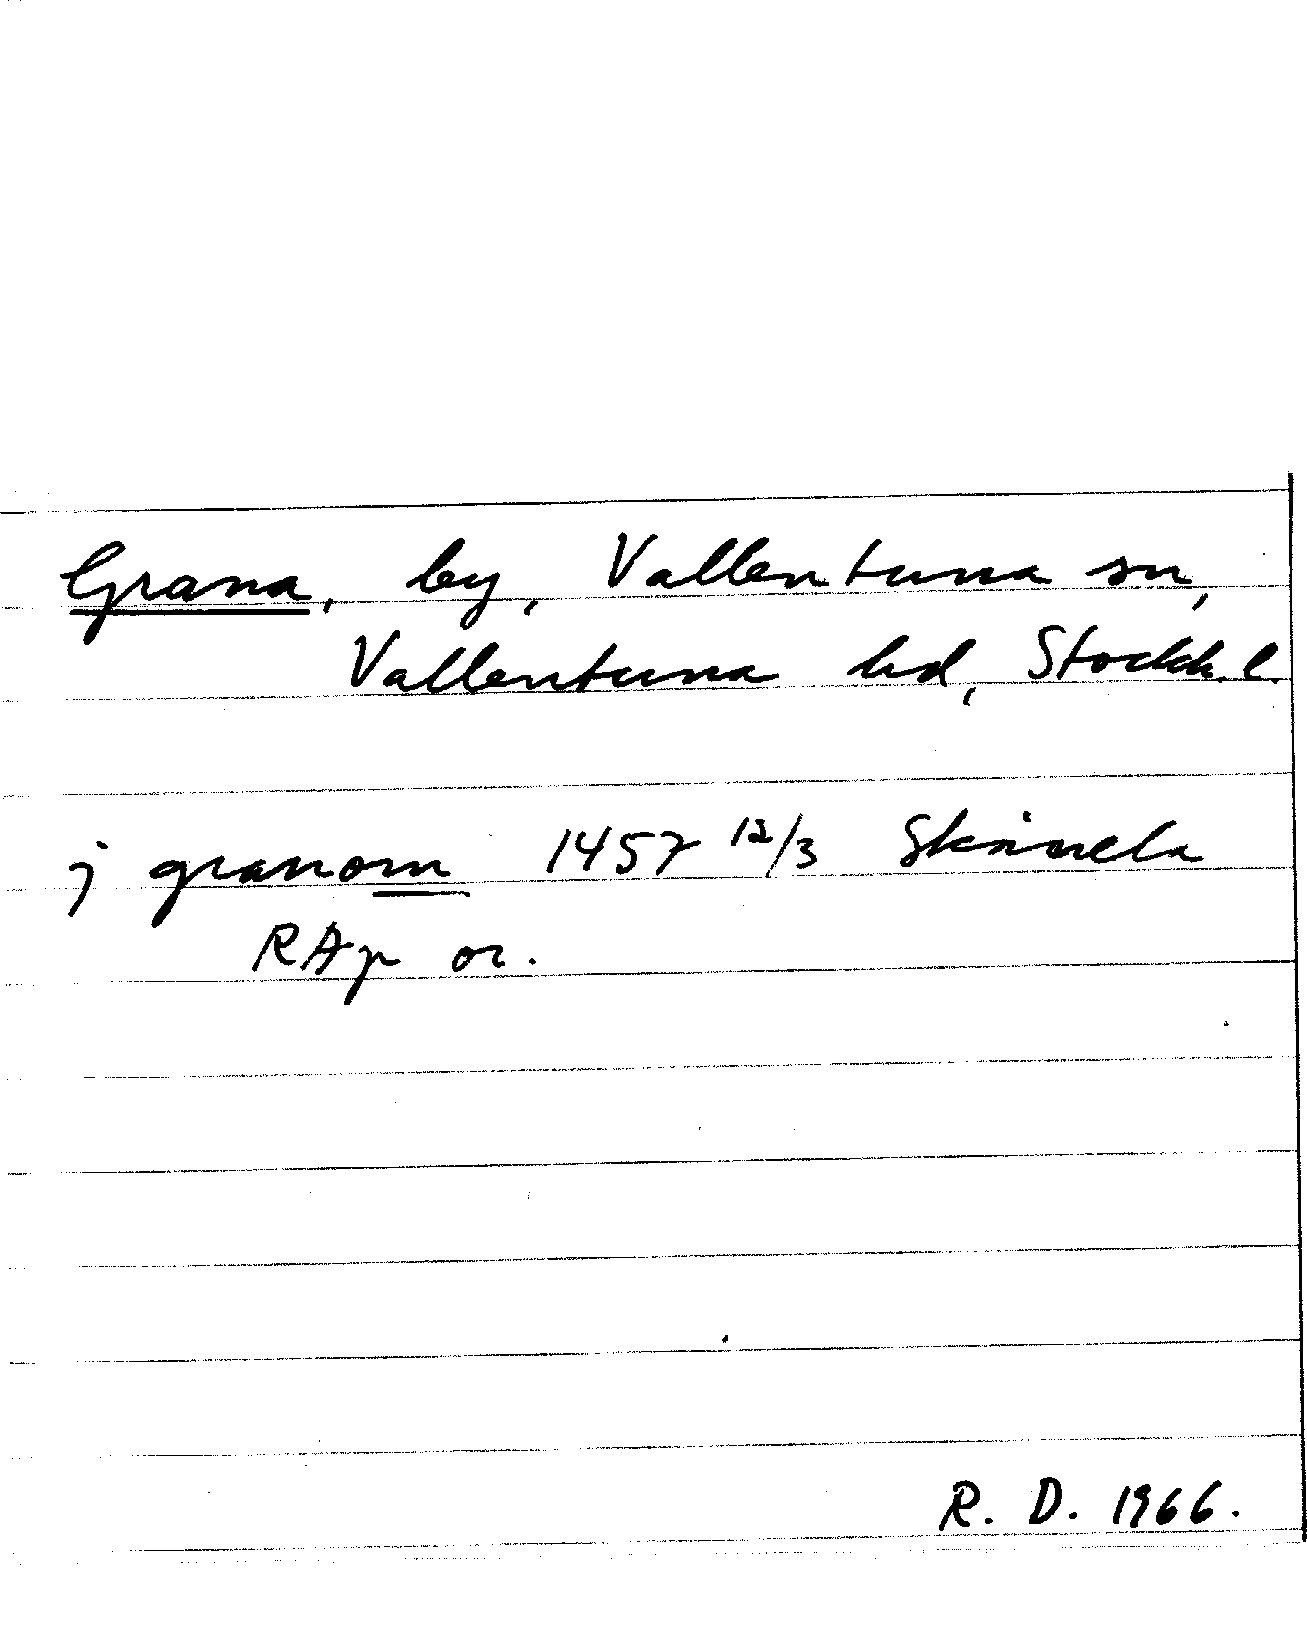 Grana, by, Vallentuna sn,
Vallentuna hd, Stockh. l.
j granom 1457 12/3 Skånela
RAp or.
R. D. 1966.